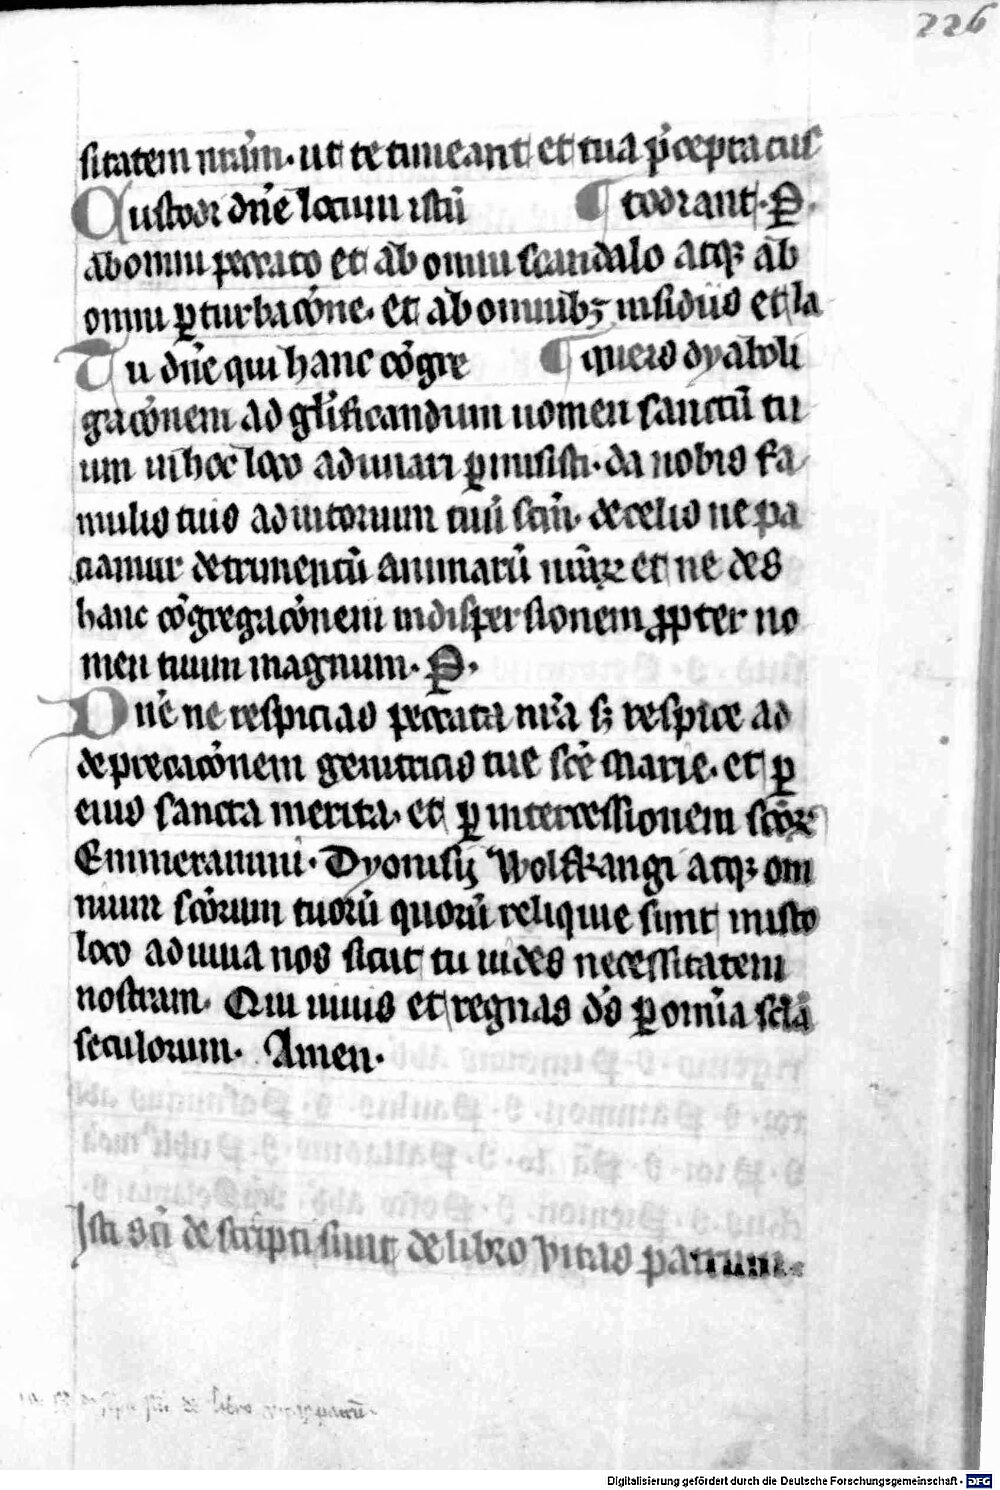 226
sitatem nr̄am. ut te timeant et tua p̄cepta cus
Custodi dn̄e locum istū ¶ todiant. P.
ab omni peccato et ab omni scandalo atqꝫ ab
omni ꝑturbacōne. et ab omnibꝫ insidiis et la
Tu dn̄e qui hanc cōgre ¶ queis dyaboli
gacōnem ad gl̄ificandum nomen sanctū tu
um in hoc loco adunari ꝑmisisti. da nobis fa
mulis tuis adiutorium tuū scm̄. de celis ne pa
ciamur detrimentū animarū nr̄aꝝ et ne des
hanc cōgregacōnem in dispersionem ꝓpter no
men tuum magnum. P.
Dn̄e ne respicias peccata nr̄a sꝫ respice ad
deprecacōnem genitricis tue sc̄e marie. et ꝑ
eius sancta merita. et ꝑ intercessionem sc̄oꝝ
Emmerammi. Dyonisij Wolfkangi atqꝫ om
nium sc̄orum tuorū quorū reliquie sunt in isto
loco adiuua nos sicut tu uides necessitatem
nostram. Qui uiuis et regnas ds̄ ꝑ omīa scl̄a
seculorum. Amen.
Isti sc̄i descripti sunt de libro vitas patrum.
de libro patrū.
Digitalisierung gefördert durch die Deutsche Forschungsgemeinschaft - DFG